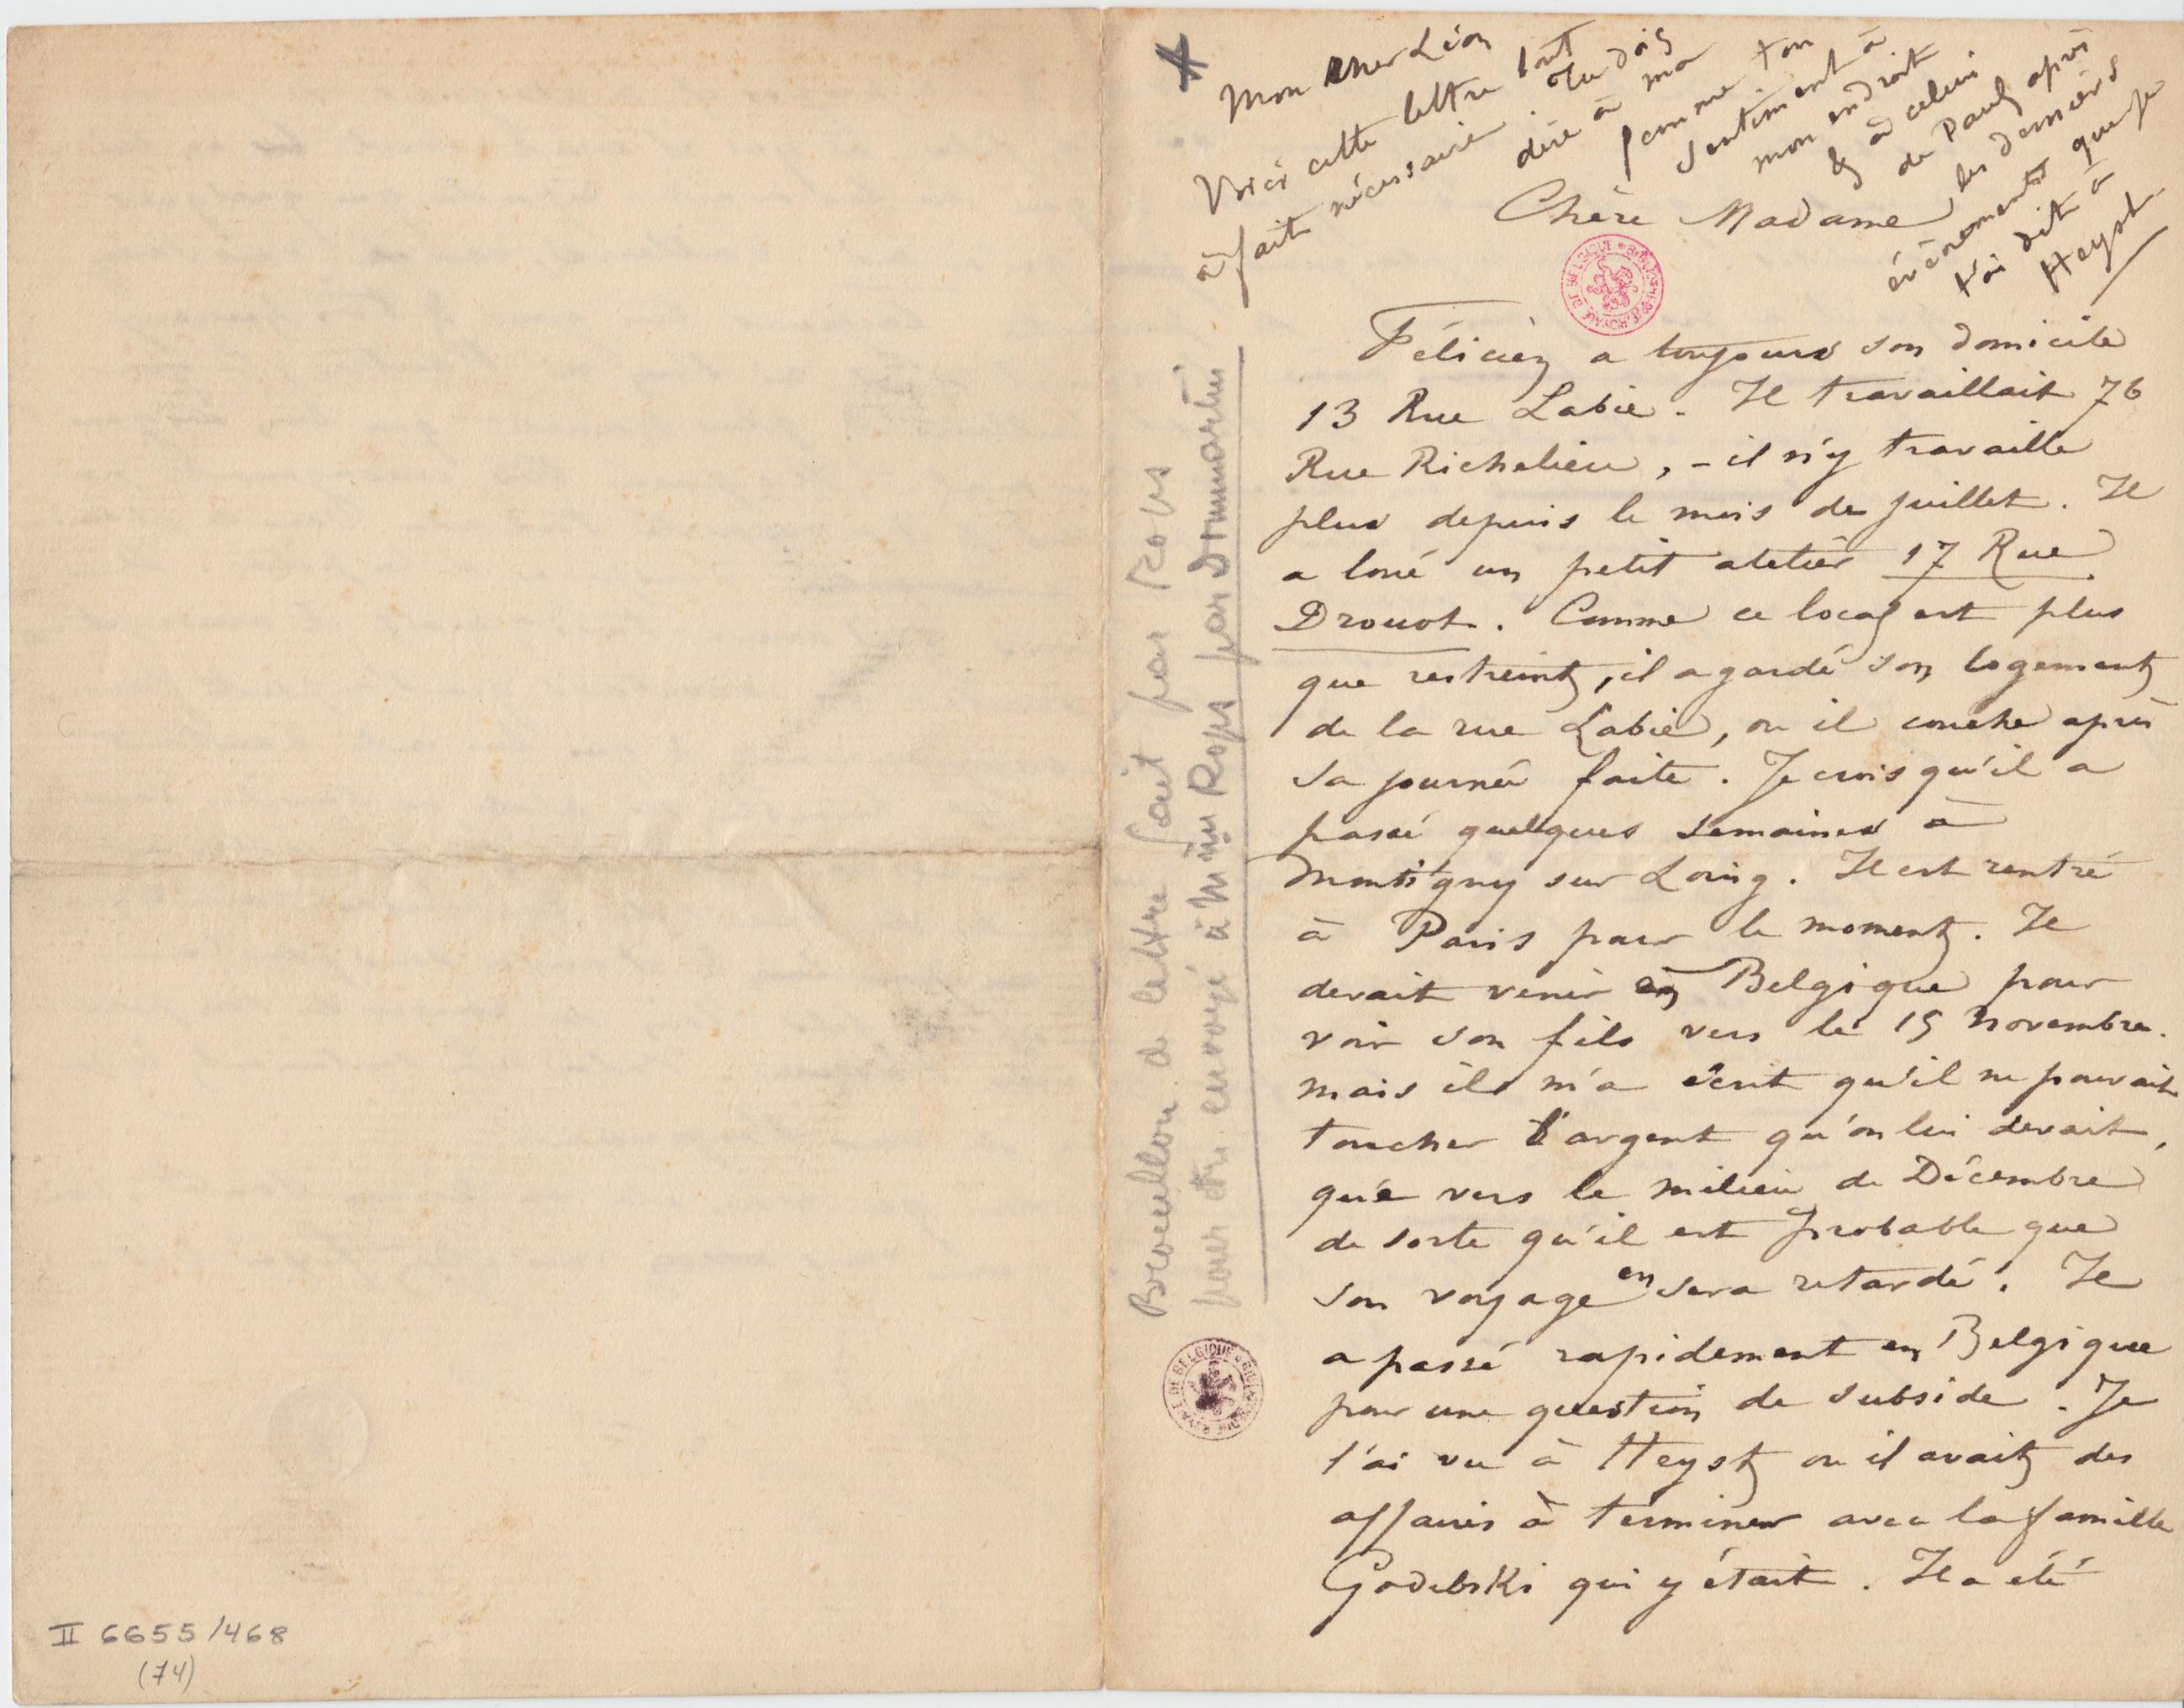 Mon cher Léon
Voici cette lettre tout
à fait nécessaire. Tu dois
dire à ma
femme ton
sentiment à
mon endroit
& à celui
de Paul après
les derniers
événements que je
t'ai dit à
Heyst.
Chère Madame,
Félicien a toujours son domicile
13 Rue Labie. Il travaillait 76
Rue Richelieu, – il n'y travaille
plus depuis le mois de juillet. Il
a loué un petit atelier 17 Rue
Drouot. Comme ce local est plus
que restreint, il a gardé son logement
de la rue Labie, ou il couche après
sa journée faite. Je crois qu'il a
passé quelques semaines à
Montigny sur Loing. Il est rentré
à Paris pour le moment. Il
devait venir en Belgique pour
voir son fils vers le 15 novembre.
mais il m'a écrit qu'il ne pouvait
toucher l'argent qu'on lui devait,
que vers le milieu de Décembre
de sorte qu'il est probable que
son voyage en sera retardé. Il
a passé rapidement en Belgique
pour une question de subside. Je
l'ai vu à Heyst ou il avait des
affaires à terminer avec la famille
Godebski qui y était. Il a été
Brouillon de lettre fait par Rops
pour être envoyé à Mme Rops par Dommartin
BIBLIOTHEQUE ROYALE DE BELGIQUE
BIBLIOTHEQUE ROYALE DE BELGIQUE
II 6655/468
(74)